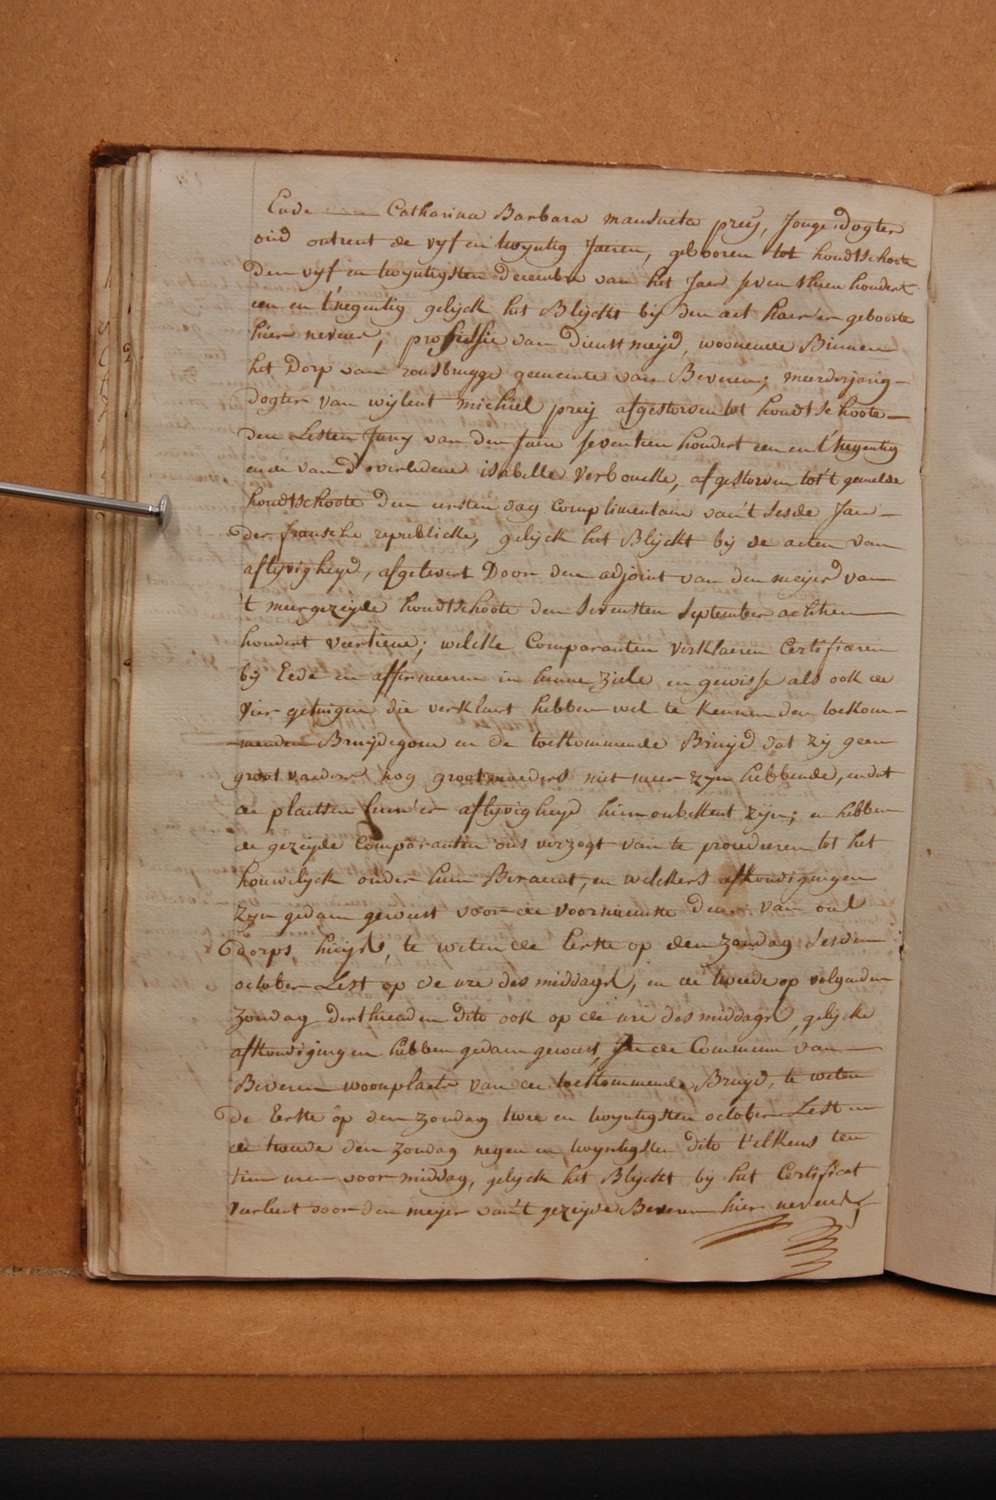 Ende Catharina Barbara mansueta preij, Jonge Dogter
oud ontrent de vyf en twyntig Jaeren, gebooren tot houdtschoote
den vyf en twyntigsten december van het Jaer seventhien hondert
een en t'negentig gelijck het Blijckt bij den act haerer geboorte
hier nevens, professie van dienstmeijd, woonende Binnen
het Dorp van rousbrugge gemeente van Beveren; meerderjarig
dogter van wijlent michiel preij afgestorven tot houdtschoote
den lesten Juny van den Jaere seventien hondert een en t'negentig
ende van d'overledene isabelle Verboucke, afgestorven tot 't gemelde
houdtschoote den eersten dag Complimentair van't sesde Jaer
der fransche republicke, gelijck het Blijckt bij de acten van
aflijvigheyd, afgelevert Door den adjoint van den meijer van
't meergezeijde houdtschoote den sevensten september achtien
hondert viertiene; welcke Comparanten verklaeren Certifieren
bij Eede en affirmeeren in hunne ziele en gewisse als ook de
vier getuigen die verklaert hebben wel te kennen den toekom-
menden Bruijdegom en de toekommende Bruijd dat zij geen
grootvaeders nog grootmoeders niet meer zijn hebbende, en dat
de plaetsen hun'er aflijvigheyd hun onbekent zijn; en hebben
de gezeijde Comparanten ons verzogt van te procederen tot het
houwelijck onder hun Beraemt, en welckers afkondigingen
zyn gedaen geweest voor de voornaemste deure van ons
dorps huijs, te weten de Eerste op den zondag sesden
october Lest op de ure des middags, en de tweede op volgenden
zondag derthienden dito ook op de ure des middags, gelijcke
afkondigingen hebben gedaen geweest, in de Commune van
Beveren woonplaets van de toekommende Bruijd, te weten
de Eerste op den zondag twee en twyntigsten october Lest en
de tweede den zondag negen en twyntigsten dito t'elkens ten
tien uren voor middag, gelijck het Blijckt bij het Certificat
verleent door den meijer van't gezeijde Beveren hier nevens